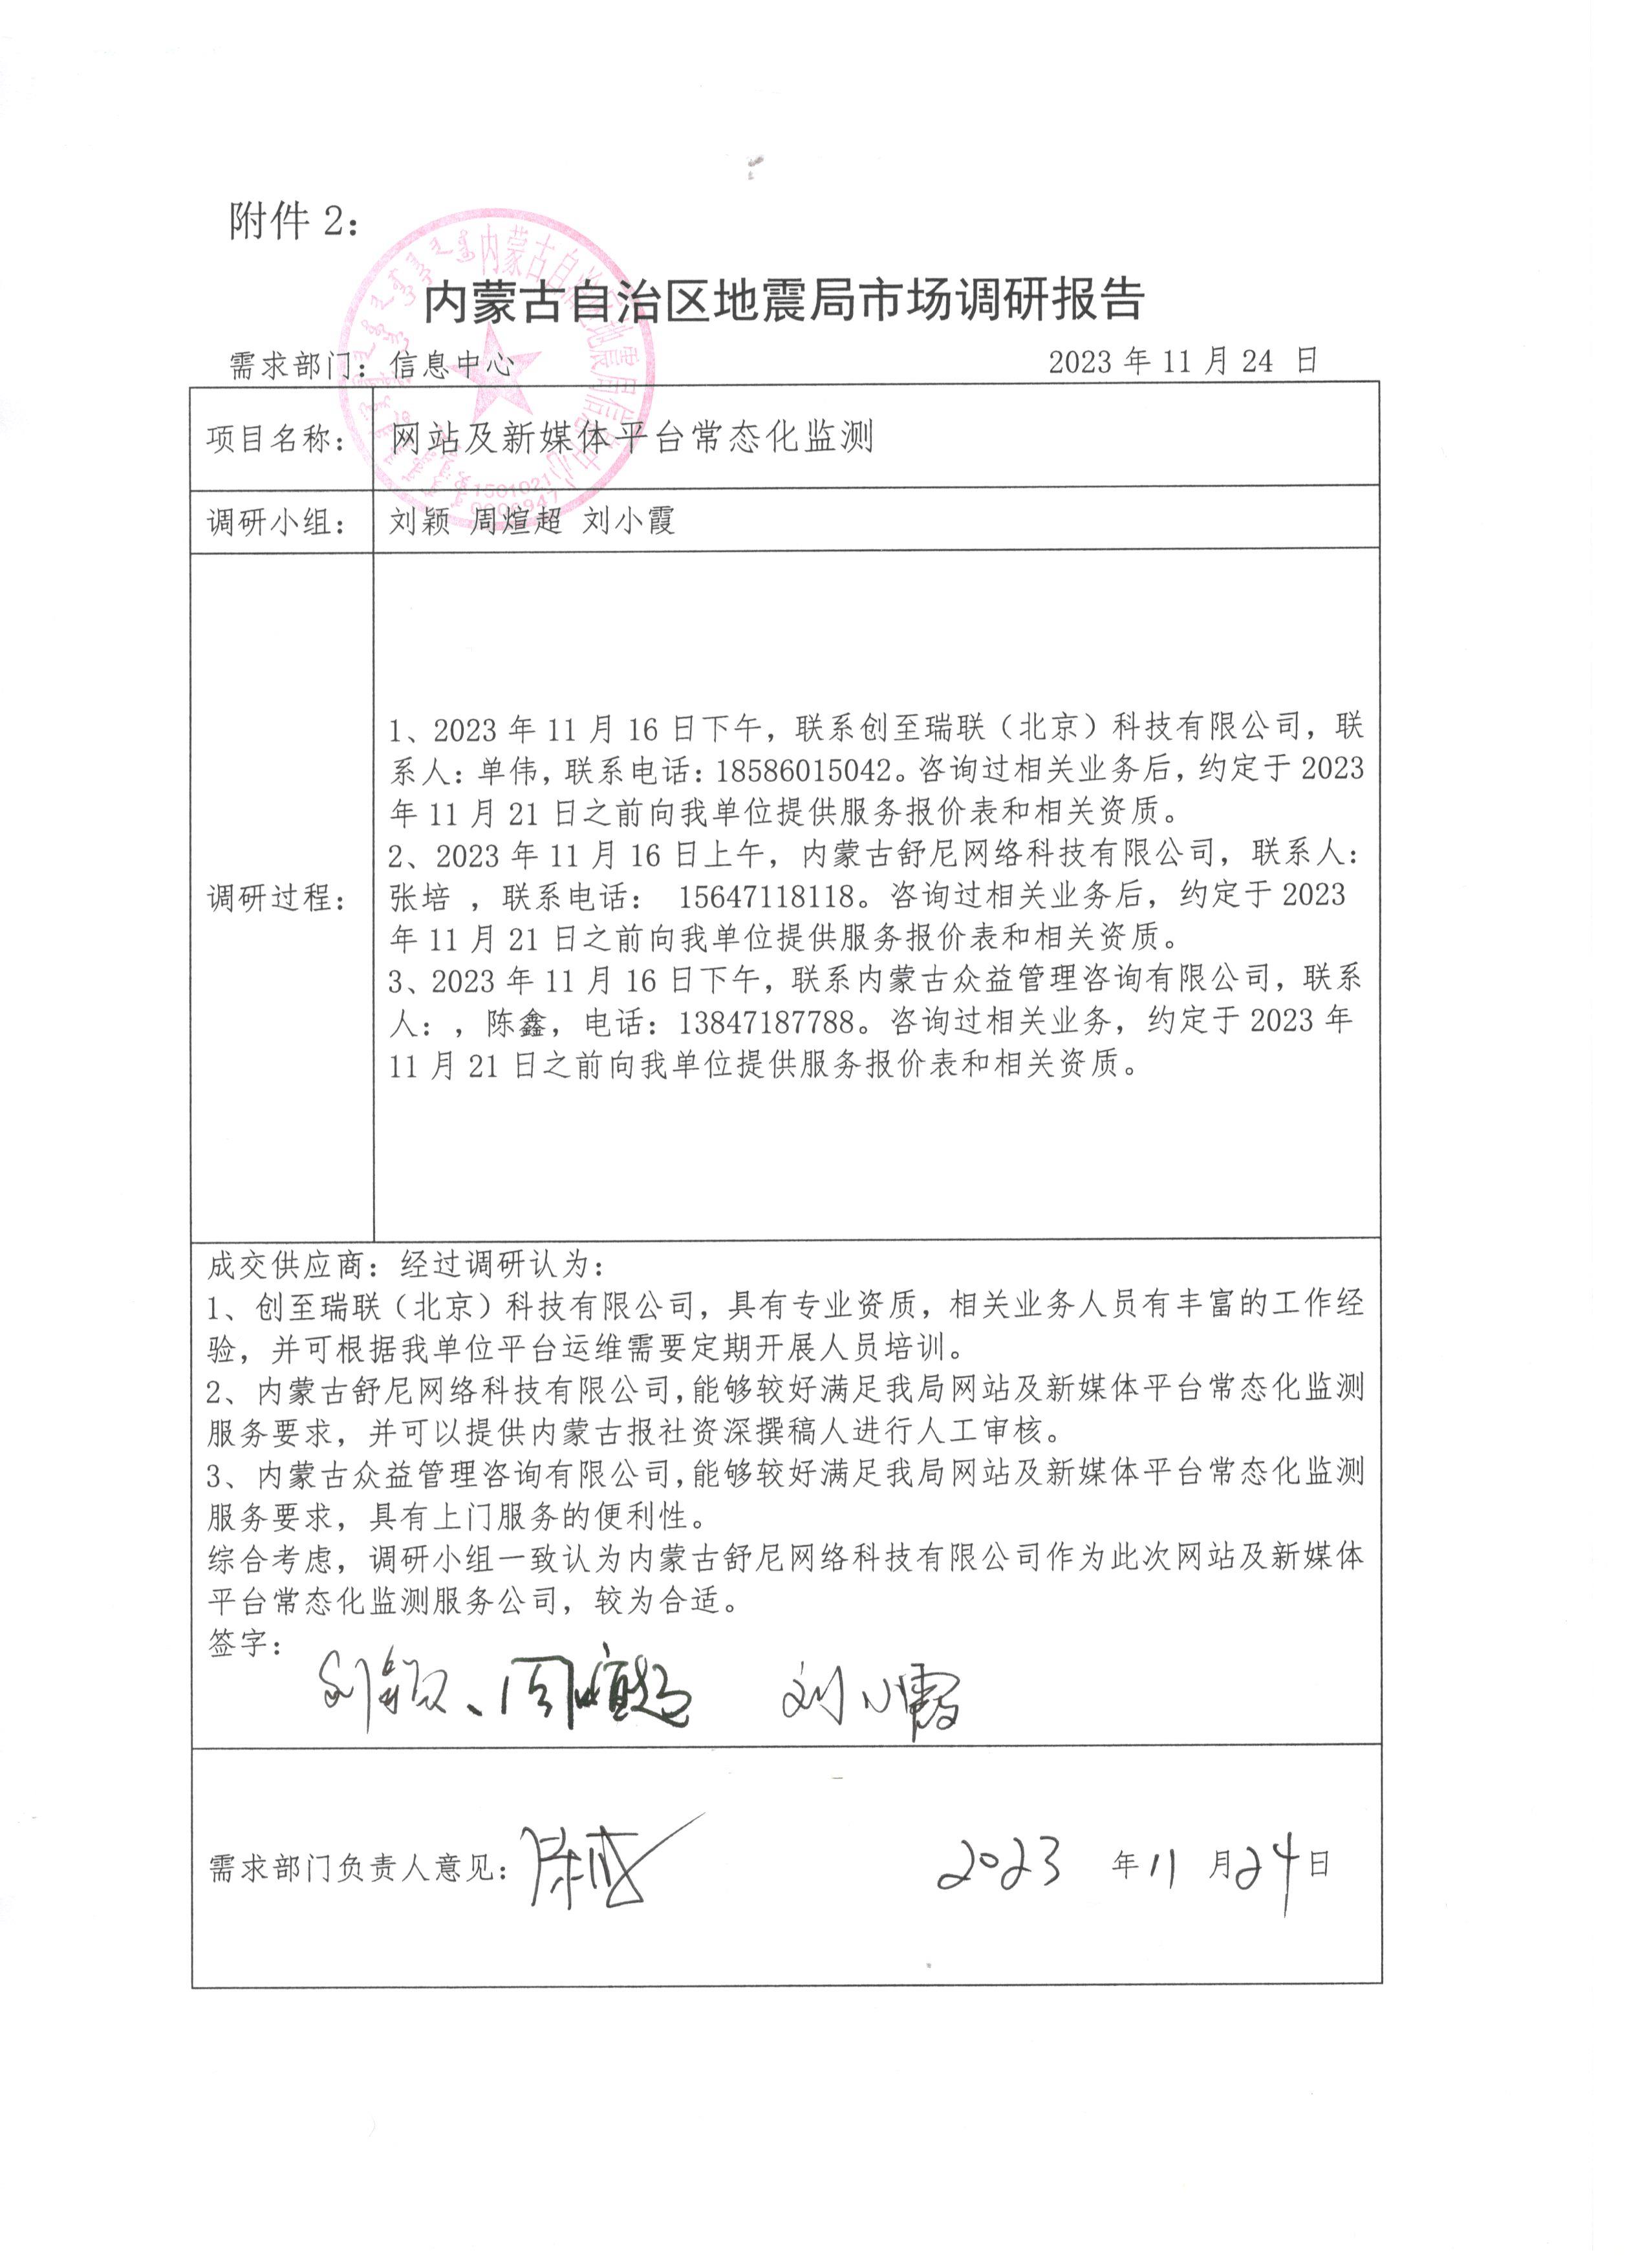 附件 2：
内蒙古自治区地震局市场调研报告
需求部门：信息中心 2023 年 11 月 24 日
项目名称： 网站及新媒体平台常态化监测
调研小组： 刘颖 周煊超 刘小霞
调研过程：
1、2023 年 11 月 16 日下午，联系创至瑞联（北京）科技有限公司，联
系人：单伟，联系电话：18586015042。咨询过相关业务后，约定于 2023
年 11 月 21 日之前向我单位提供服务报价表和相关资质。
2、2023 年 11 月 16 日上午，内蒙古舒尼网络科技有限公司，联系人：
张培 ，联系电话： 15647118118。咨询过相关业务后，约定于 2023
年 11 月 21 日之前向我单位提供服务报价表和相关资质。
3、2023 年 11 月 16 日下午，联系内蒙古众益管理咨询有限公司，联系
人：，陈鑫，电话：13847187788。咨询过相关业务，约定于 2023 年
11 月 21 日之前向我单位提供服务报价表和相关资质。
成交供应商：经过调研认为：
1、创至瑞联（北京）科技有限公司，具有专业资质，相关业务人员有丰富的工作经
验，并可根据我单位平台运维需要定期开展人员培训。
2、内蒙古舒尼网络科技有限公司，能够较好满足我局网站及新媒体平台常态化监测
服务要求，并可以提供内蒙古报社资深撰稿人进行人工审核。
3、内蒙古众益管理咨询有限公司，能够较好满足我局网站及新媒体平台常态化监测
服务要求，具有上门服务的便利性。
综合考虑，调研小组一致认为内蒙古舒尼网络科技有限公司作为此次网站及新媒体
平台常态化监测服务公司，较为合适。
签字：
刘颖、周煊超 刘小霞
需求部门负责人意见： 2023 年 11 月 24 日
内蒙古自治区地震局信息中心